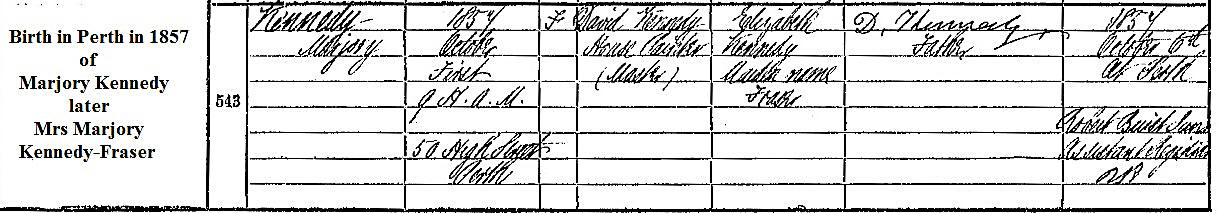 Birth in Perth in 1857
of
Marjory Kennedy
later
Mrs Marjory
Kennedy-Fraser
543
Kennedy
Marjory
1857
October
First
9 H. a. M.
50 High Street
Perth
F
David Kennedy
House Painter
(Master)
Elizabeth
Kennedy
Maiden name
Fraser
D. Kennedy
Father
1857
October 6th
At Perth
Robert
Assistant Registrar